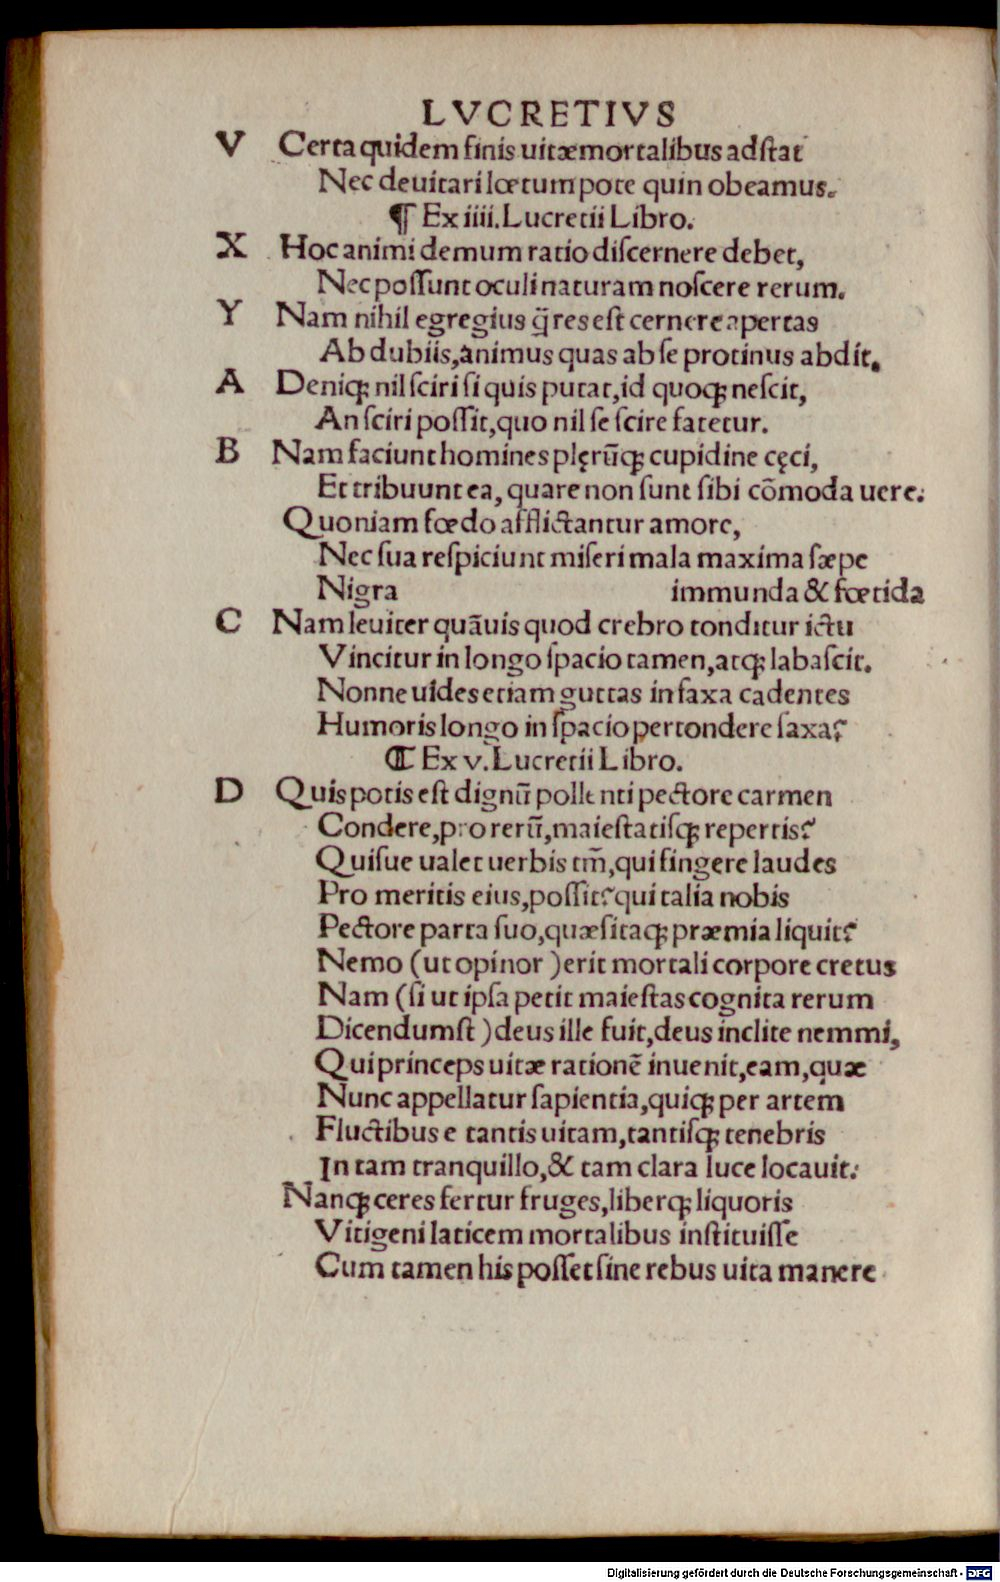 LVCRETIVS
V Certa quidem finis uitæ mortalibus adstat
Nec deuitari lœtum pote quin obeamus.
¶ Ex iiii. Lucretii Libro.
X Hoc animi demum ratio discernere debet,
Nec possunt oculi naturam noscere rerum.
Y Nam nihil egregius q̃ res est cernere apertas
Ab dubiis, animus quas ab se protinus abdit.
A Deniqꝫ nil sciri si quis putat, id quoqꝫ nescit,
An sciri possit, quo nil se scire fatetur.
B Nam faciunt homines plęrũqꝫ cupidine cęci,
Et tribuunt ea, quare non sunt sibi cõmoda uere.
Quoniam fœdo afflictantur amore,
Nec sua respiciunt miseri mala maxima sæpe
Nigra immunda & fœtida
C Nam leuiter quãuis quod crebro tonditur ictu
Vincitur in longo spacio tamen, atqꝫ labascit.
Nonne uides etiam guttas in saxa cadentes
Humoris longo in spacio pertondere saxa?
¶ Ex v. Lucretii Libro.
D Quis potis est dignũ pollenti pectore carmen
Condere, pro rerũ, maiestatisqꝫ repertis?
Quisue ualet uerbis tm̃, qui fingere laudes
Pro meritis eius, possit? qui talia nobis
Pectore parta suo, quæsitaqꝫ præmia liquit?
Nemo (ut opinor) erit mortali corpore cretus
Nam (si ut ipsa petit maiestas cognita rerum
Dicendumst) deus ille fuit, deus inclite nemmi,
Qui princeps uitæ rationẽ inuenit, eam, quæ
Nunc appellatur sapientia, quiqꝫ per artem
Fluctibus e tantis uitam, tantisqꝫ tenebris
In tam tranquillo, & tam clara luce locauit.
Nanqꝫ ceres fertur fruges, liberqꝫ liquoris
Vitigeni laticem mortalibus instituisse
Cum tamen his posset sine rebus uita manere
Digitalisierung gefördert durch die Deutsche Forschungsgemeinschaft - DFG